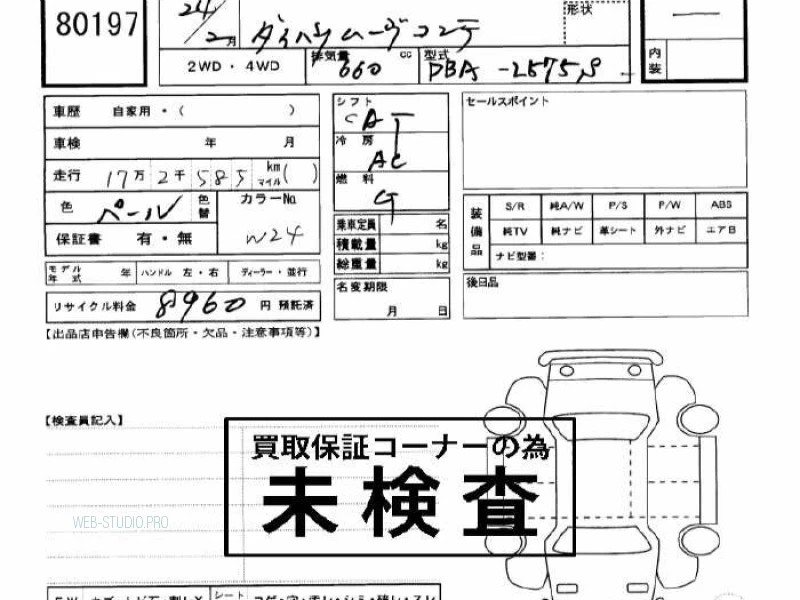 80197
24/2月
ダイハツムーヴコンテ
形状
2WD・4WD
排気量 660 cc
型式 DBA-L575S
内装
車歴 自家用・( )
車検 年 月
走行 17万2千585 km マイル( )
色 パール 色替 カラーNo W24
保証書 有・無
モデル年式 年 ハンドル 左・右 ディーラー・並行
リサイクル料金 8960 円 預託済
シフト AT
冷房 AC
燃料 G
乗車定員 名
積載量 kg
総重量 kg
名変期限
月 日
セールスポイント
装備品
S/R 純A/W P/S P/W ABS
純TV 純ナビ 革シート 外ナビ エアB
ナビ型番:
後日品
【出品店申告欄(不良箇所・欠品・注意事項等)】
【検査員記入】
買取保証コーナーの為
未検査
WEB-STUDIO.PRO
シート